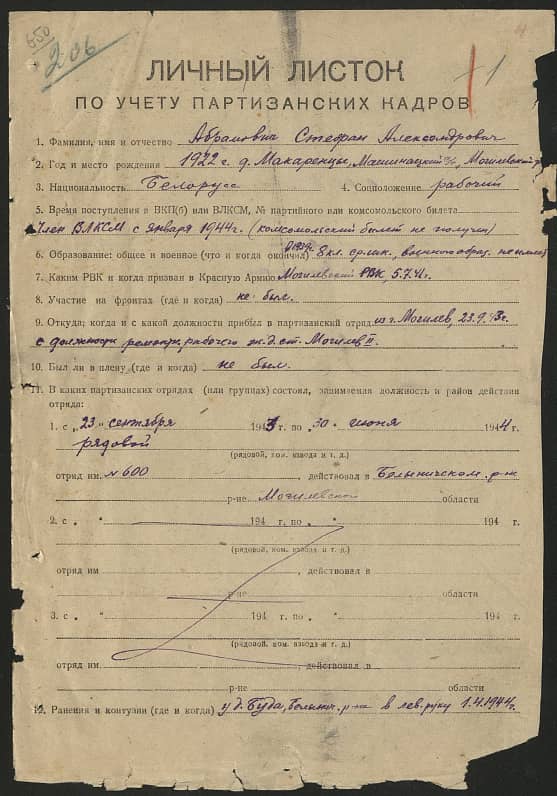 550
206
1
ЛИЧНЫЙ ЛИСТОК
ПО УЧЕТУ ПАРТИЗАНСКИХ КАДРОВ
1. Фамилия, имя и отчество Абрамович Стефан Александрович
2. Год и место рождения 1922 г. д. Макаренцы, с/с, Могилевской
3. Национальность Белорусс 4. Соцположение рабочий
5. Время поступления в ВКП(б) или ВЛКСМ, № партийного или комсомольского билета
Член ВЛКСМ с января 1944г. (комсомольский билет не получен)
6. Образование: общее и военное (что и когда окончил) 8 кл. ср. шк. военного образ. не имеет
7. Каким РВК и когда призван в Красную Армию Могилевский РВК, 5.7.41г.
8. Участие на фронтах (где и когда) не был.
9. Откуда, когда и с какой должности прибыл в партизанский отряд из г. Могилев, 23.9.43г.
с должности ремонтн. рабочего ж.д. ст. Могилев II.
10. Был ли в плену (где и когда) не был.
11. В каких партизанских отрядах (или группах) состоял, занимаемая должность и район действия
отряда:
1. с „23" сентября 1943 г. по „30" июня 1944 г.
рядовой
(рядовой, ком. взвода и т. д.)
отряд им. № 600 , действовал в Белыничском р-не
р-не Могилевской области
2. с „ " 194 г. по „ " 194 г.
(рядовой, ком. взвода и т. д.)
отряд им , действовал в
р-не области
3. с „ " 194 г. по „ " 194 г.
(рядовой, ком. взвода и т. д.)
отряд им. , действовал в
р-не области
12. Ранения и контузии (где и когда) у д. Буда, Белынич. р-на в лев. руку 1.4.1944г.